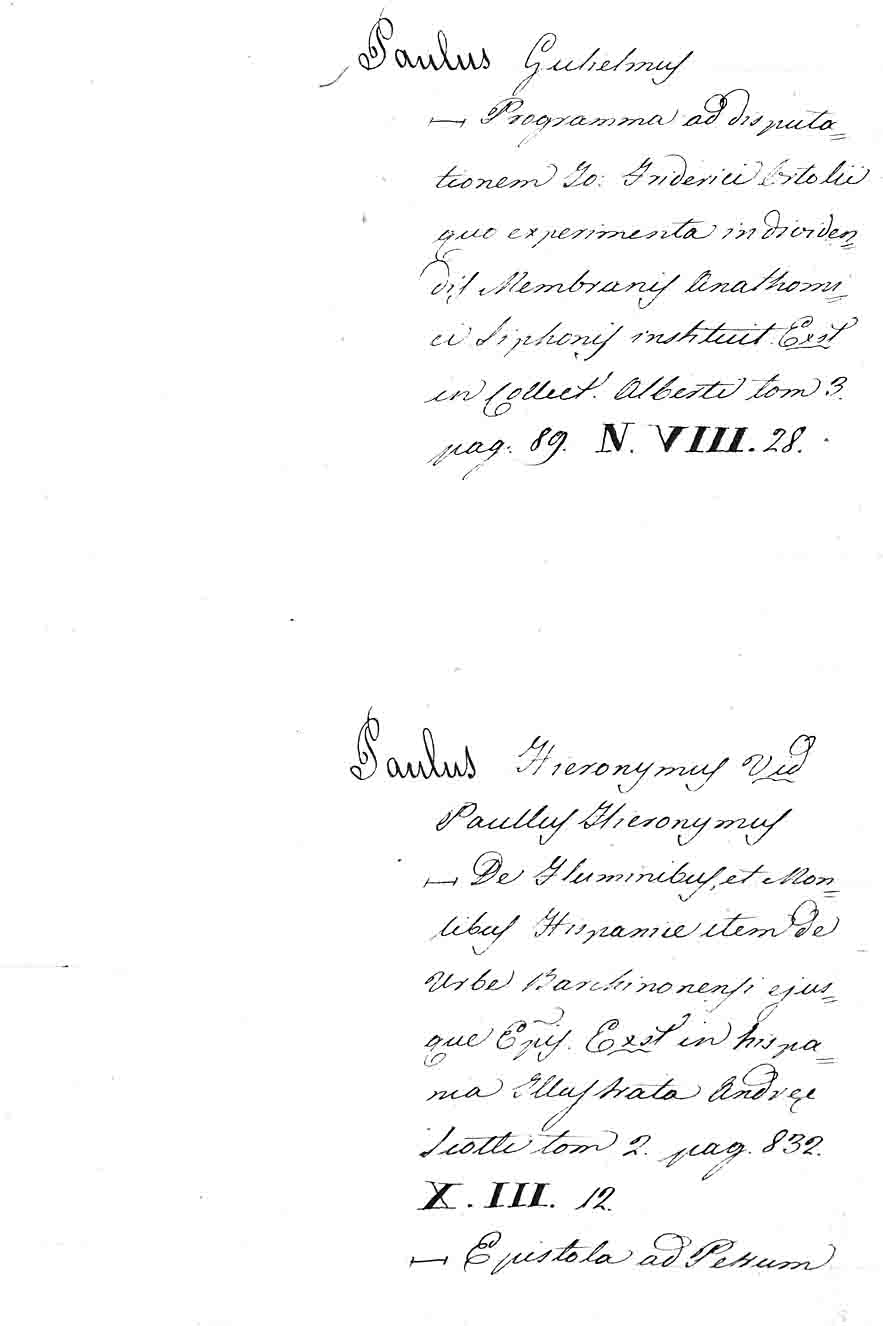 Paulus Gulielmus
— Programma ad disputa=
tionem Jo: Friderici Ortolii
quo experimenta in dividen=
dis Membranis Anathomi=
ci Siphonis instituit. Exst
in Collect. Alberti tom 3.
pag. 89. N. VIII. 28.
Paulus Hieronymus Vid
Paullus Hieronymus
— De Fluminibus, et Mon=
tibus Hispaniæ item de
Urbe Barchinonensi ejus=
que Epis. Exst in hispa=
nia Illustrata Andreæ
Scotti tom 2. pag. 832.
X. III. 12.
— Epistola ad Petrum